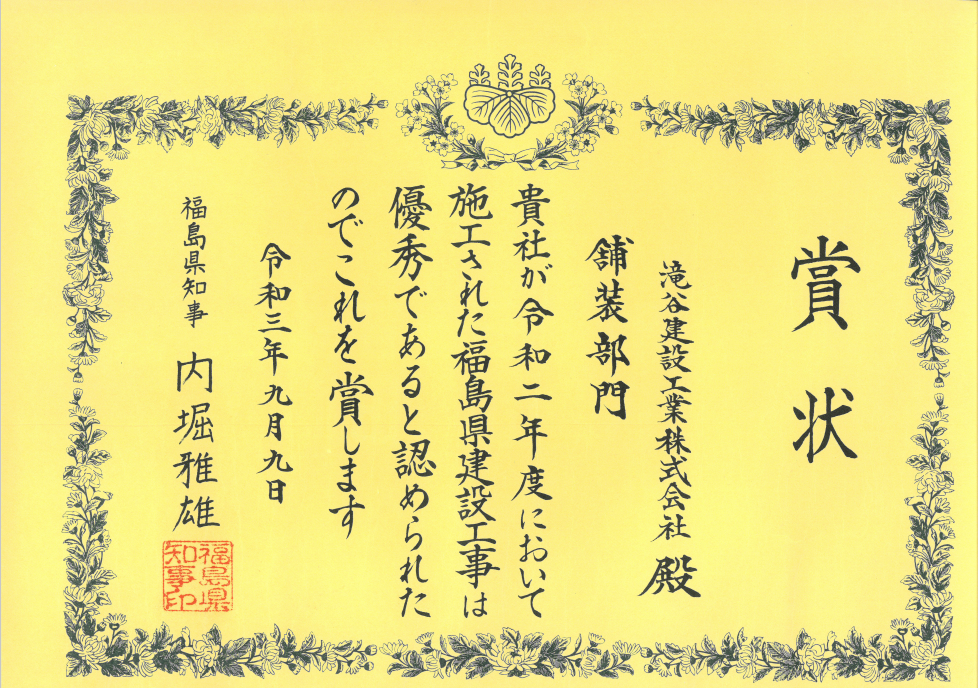 賞状
滝谷建設工業株式会社 殿
舗装部門
貴社が令和二年度において
施工された福島県建設工事は
優秀であると認められた
のでこれを賞します
令和三年九月九日
福島県知事 内堀雅雄
福島県
知事印